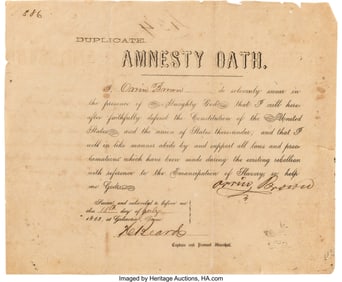 886
DUPLICATE.
AMNESTY OATH.
I, Orrin Brown do solemnly swear in
the presence of Almighty God, that I will here-
after faithfully defend the Constitution of the United
States and the union of States thereunder, and that I
will in like manner abide by and support all laws and proc-
lamations which have been made during the existing rebellion
with reference to the Emancipation of Slaves, so help
me God.
Orrin Brown
Sworn and subscribed to before me
this 18th day of July
at Galveston, Texas
Captain and Provost Marshal.
Imaged by Heritage Auctions, HA.com